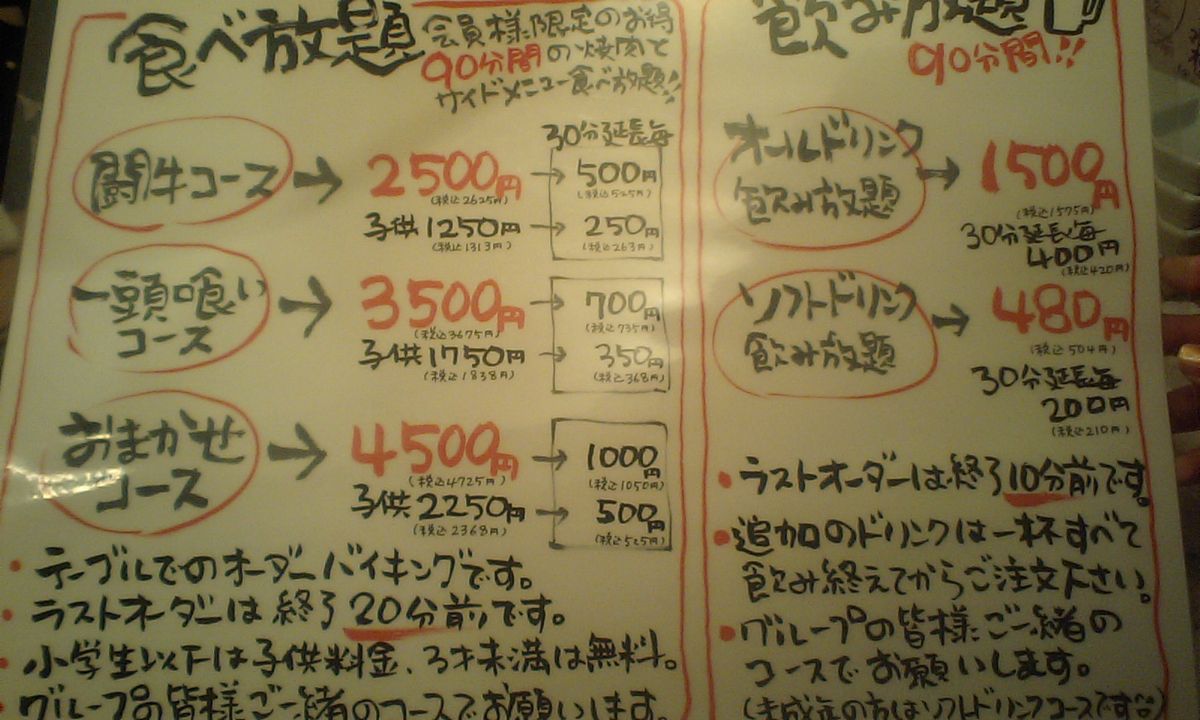 食べ放題
会員様限定のお得
90分間の焼肉と
サイドメニュー食べ放題!!
30分延長毎
闘牛コース → 2500円 → 500円
(税込2625円) (税込525円)
子供1250円 → 250円
(税込1313円) (税込263円)
一頭喰い
コース → 3500円 → 700円
(税込3675円) (税込735円)
子供1750円 → 350円
(税込1838円) (税込368円)
おまかせ
コース → 4500円 → 1000円
(税込4725円) (税込1050円)
子供2250円 → 500円
(税込2368円) (税込525円)
・テーブルでのオーダーバイキングです。
・ラストオーダーは終了20分前です。
・小学生以下は子供料金、3才未満は無料。
・グループの皆様ご一緒のコースでお願いします。
飲み放題
90分間!!
オールドリンク
飲み放題 → 1500円
(税込1575円)
30分延長毎
400円
(税込420円)
ソフトドリンク
飲み放題 → 480円
(税込504円)
30分延長毎
200円
(税込210円)
・ラストオーダーは終了10分前です。
・追加のドリンクは一杯すべて
飲み終えてからご注文下さい。
・グループの皆様ご一緒の
コースでお願いします。
(未成年の方はソフトドリンクコースです